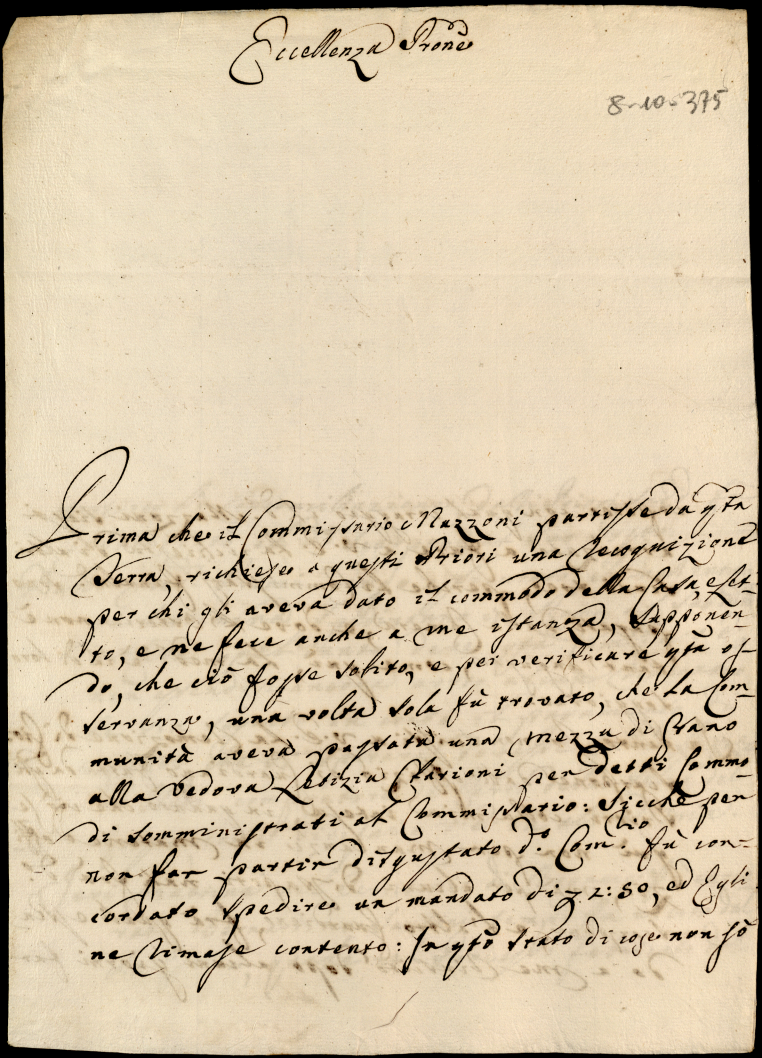 Eccellenza Prone
8-10-375
Prima che il Commissario Mazzoni partisse da qta
Terra, richiese a questi Priori una recoquizione
per chi gli aveva dato il commodo della Casa, e Let-
to, e ne fece anche a me istanza, supponen-
do, che ciò fosse solito, e per verificare qta os-
servanza, una volta sola fù trovato, che la Com-
munità aveva passata una mezza di Grano
alla Vedova Letizia Clarioni per detti Commo-
di somministrati al Commissario: Sicchè per
non far partir disgustato do. Com.rio fù con-
cordato spedire un mandato di 2: 50, ed Egli
ne rimase contento: In qto stato di cose non sò